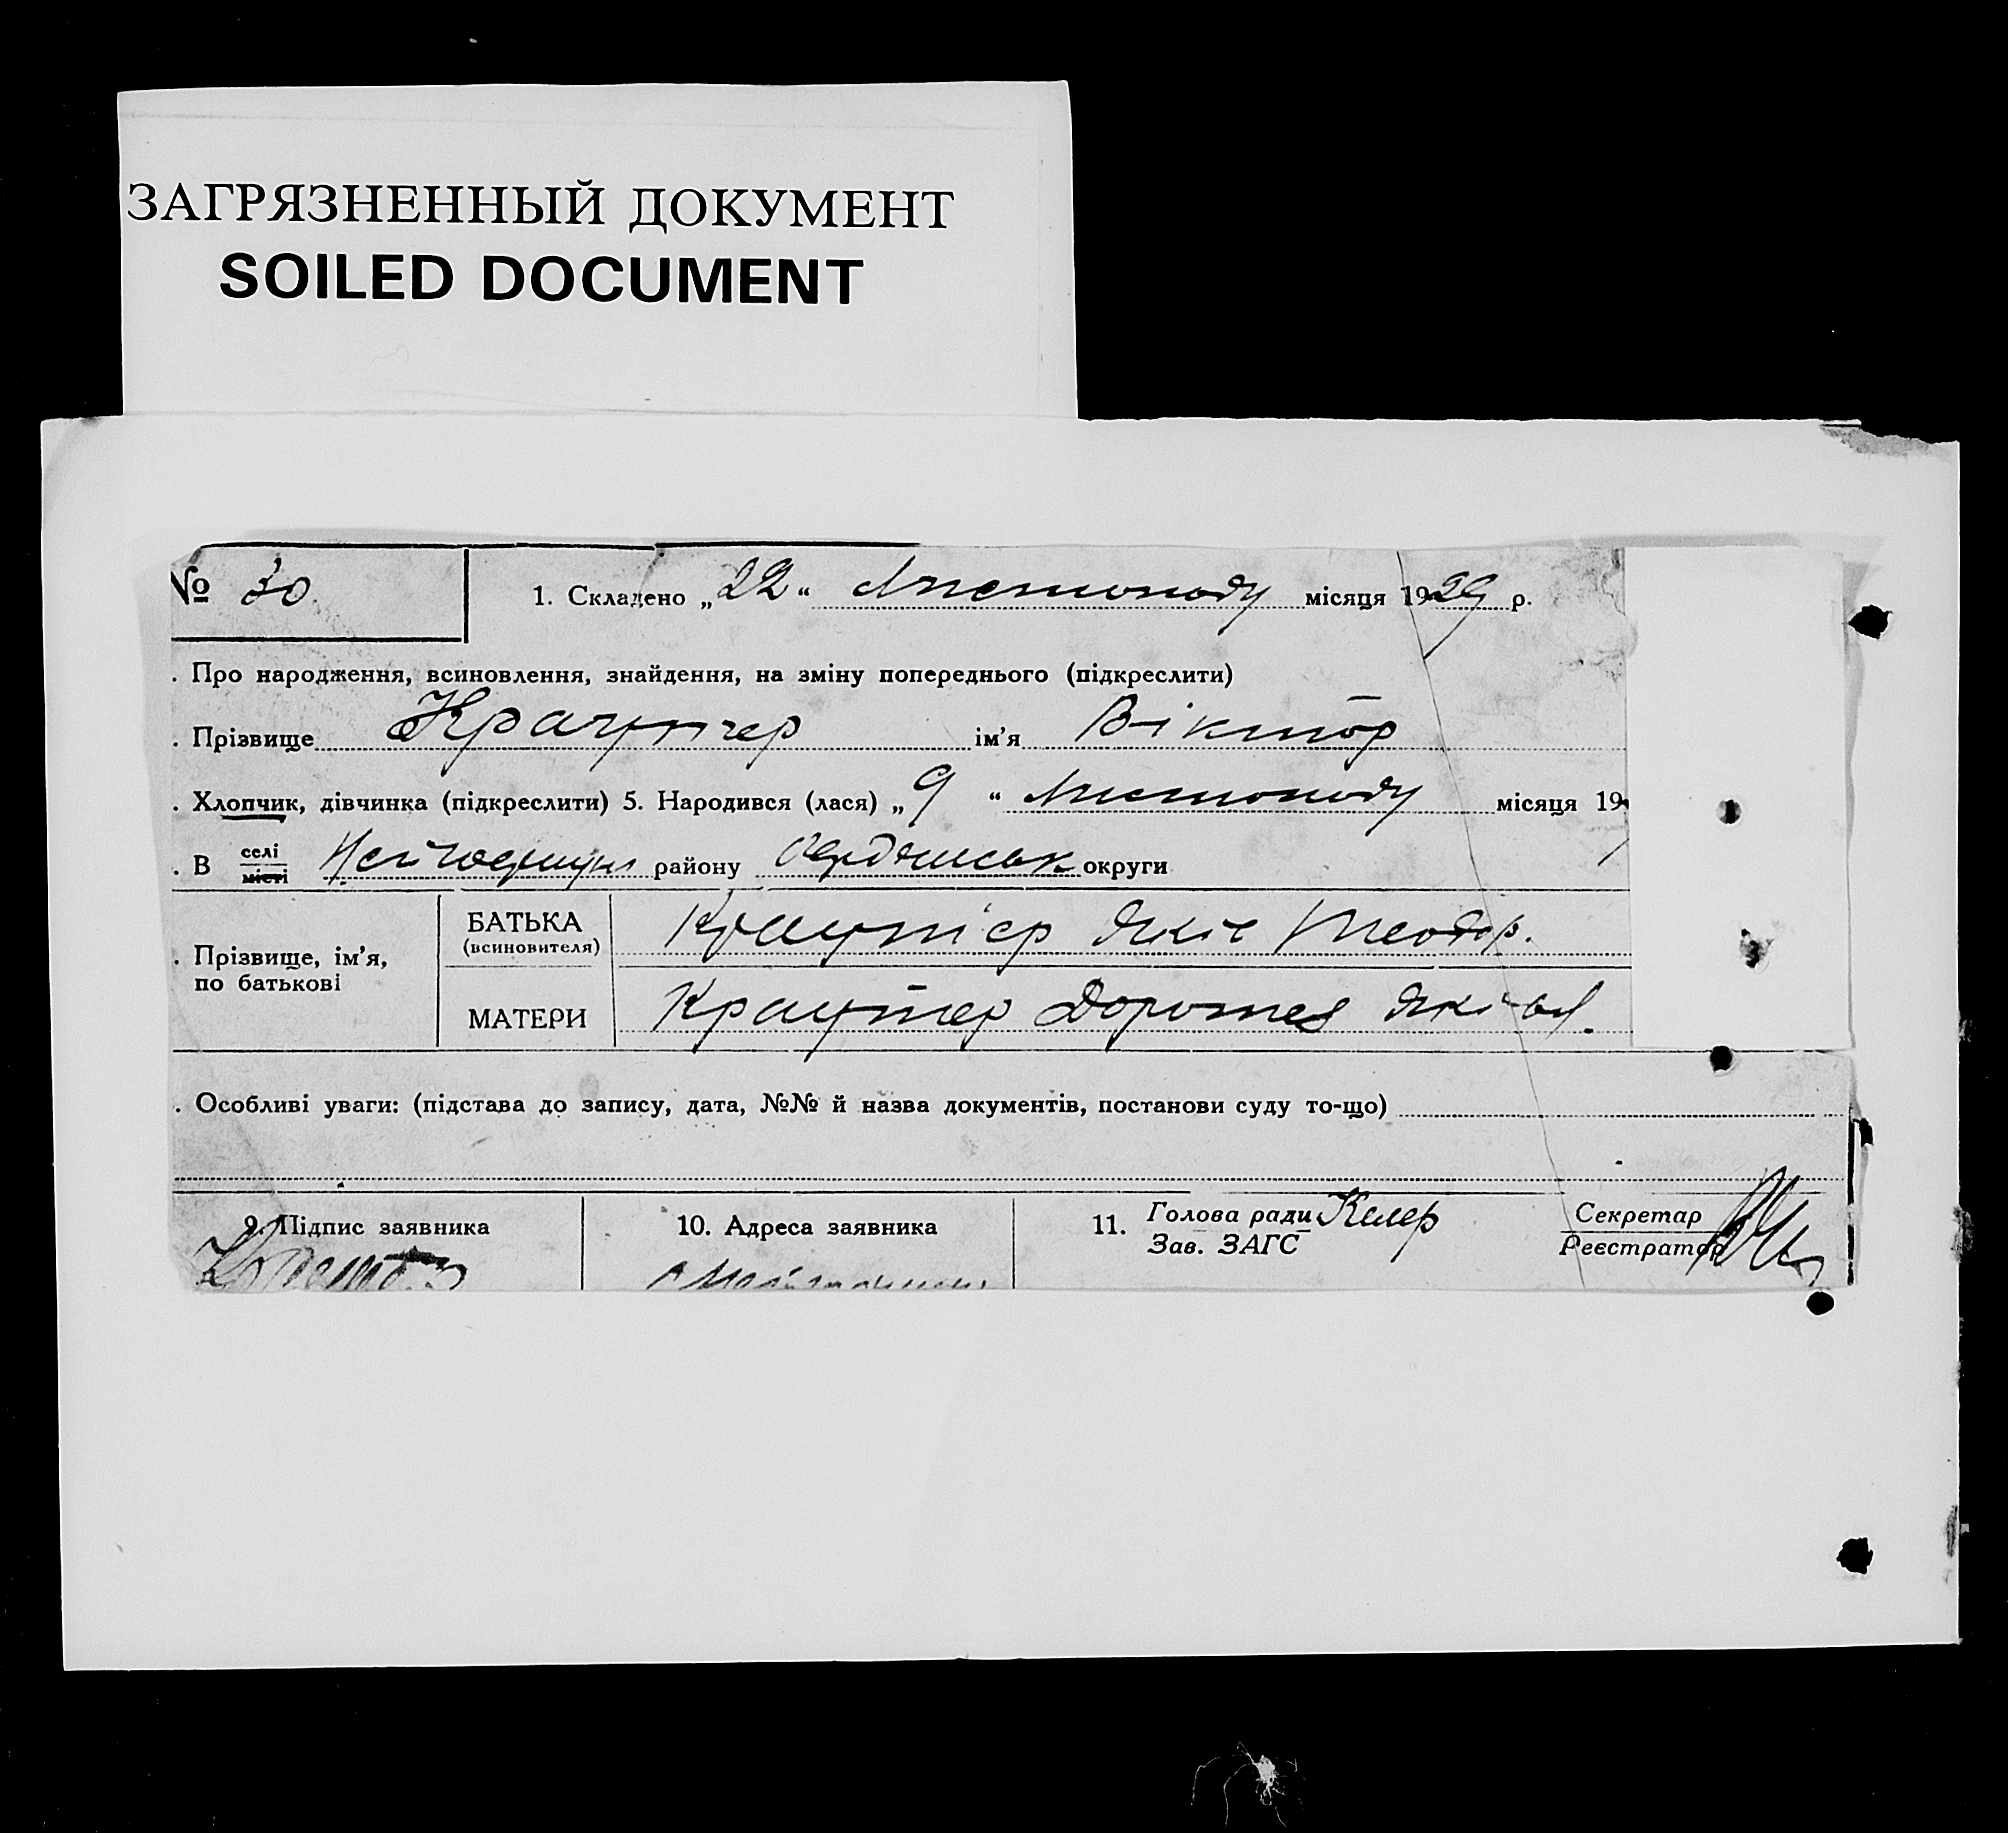 ЗАГРЯЗНЕННЫЙ ДОКУМЕНТ
SOILED DOCUMENT
№ 30 1. Складено „22“ Листопаду місяця 1929 р.
. Про народження, всиновлення, знайдення, на зміну попереднього (підкреслити)
. Прізвище Краутер ім’я Віктор
. Хлопчик, дівчинка (підкреслити) 5. Народився (лася) „9“ Листопаду місяця 19
. В селі місті району округи
. Прізвище, ім’я, по батькові
БАТЬКА (всиновителя) Краутер Яків Теодор.
МАТЕРИ Краутер Доротея Яківл.
. Особливі уваги: (підстава до запису, дата, №№ й назва документів, постанови суду то-що)
9. Підпис заявника 10. Адреса заявника 11. Голова ради Келер Секретар
Зав. ЗАГС Реєстратор